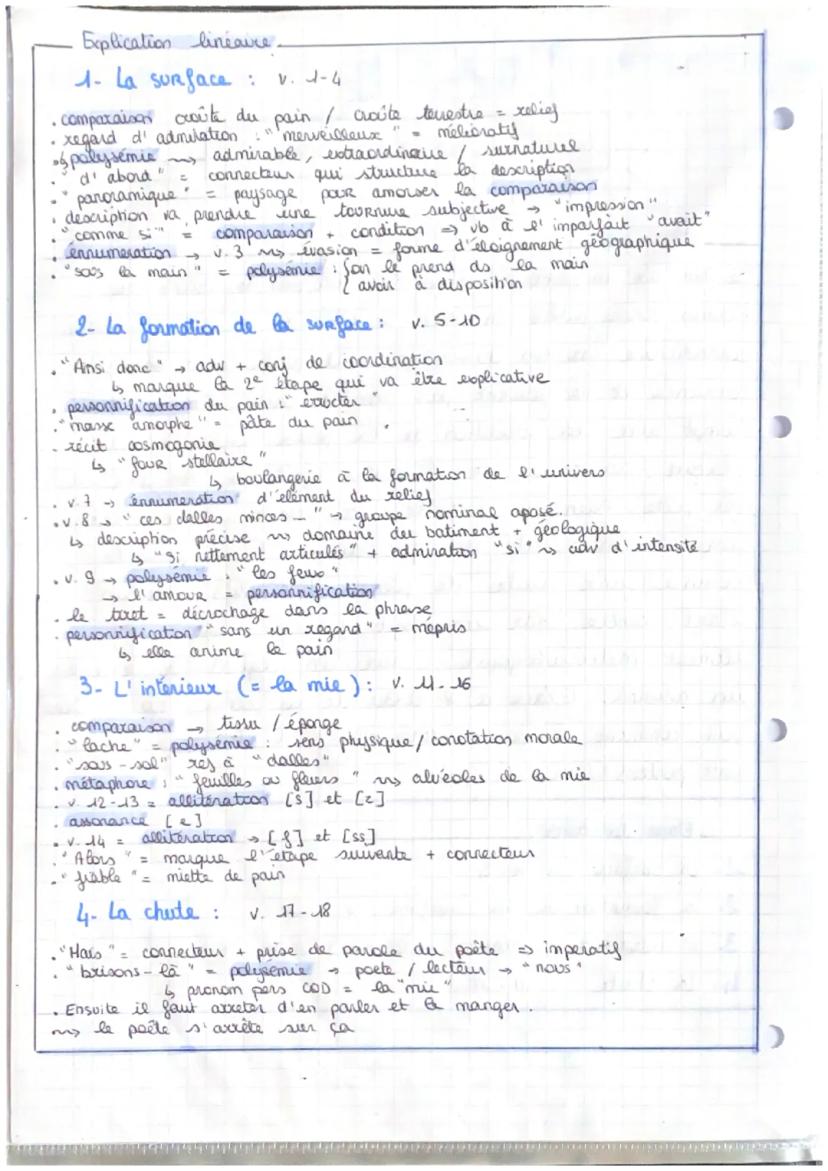 Explication linéaire.
1- La surface : v. 1-4
. comparaison croûte du pain / croûte terrestre = relief
. regard d'admiration : "merveilleux" = mélioratif
↳ polysémie ⇝ admirable, extraordinaire / surnaturel
. "d'abord" = connecteur qui structure la description
. "panoramique" = paysage pour amorser la comparaison
. description va prendre une tournure subjective → "impression"
. "comme si" = comparaison + condition ⇒ vb à l'imparfait "avait"
. énnumeration → v. 3 ⇝ évasion = forme d'éloignement géographique
. "sous la main" = polysémie : { on le prend ds la main
{ avoir à disposition
2- La formation de la surface : v. 5-10
. "Ainsi donc" → adv + conj de coordination
↳ marque la 2e étape qui va être explicative
. personnification du pain : "éructer"
. "masse amorphe" = pâte du pain
. récit cosmogonie
↳ "four stellaire"
↳ boulangerie à la formation de l'univers
. v. 7 → énnumeration d'élément du relief
. v. 8 → "ces dalles minces -" → groupe nominal aposé.
↳ description précise ⇝ domaine du batiment + géologique
↳ "si nettement articulés" + admiration "si" ⇝ adv d'intensité
. v. 9 → polysémie : "les feux"
→ l'amour = personnification
. le tiret = décrochage dans la phrase
. personnification "sans un regard" = mépris
↳ elle anime le pain
3- L'intérieur (= la mie) : v. 11-16
. comparaison → tissu / éponge
. "lache" = polysémie : sens physique / conotation morale
. "sous-sol" res à "dalles"
. métaphore : "feuilles ou fleurs" ⇝ alvéoles de la mie
. v. 12-13 = allitération [s] et [z]
. assonance [e]
. v. 14 = allitération → [f] et [ss]
. "Alors" = marque l'étape suivante + connecteur
. "friable" = miette de pain
4- La chute : v. 17-18
. "Mais" = connecteur + prise de parole du poète ⇒ imperatif
. "brisons-là" = polysémie → poete / lecteur → "nous"
↳ pronom pers COD = la "mie"
. Ensuite il faut arreter d'en parler et la manger.
⇝ le poète s'arrête sur ça